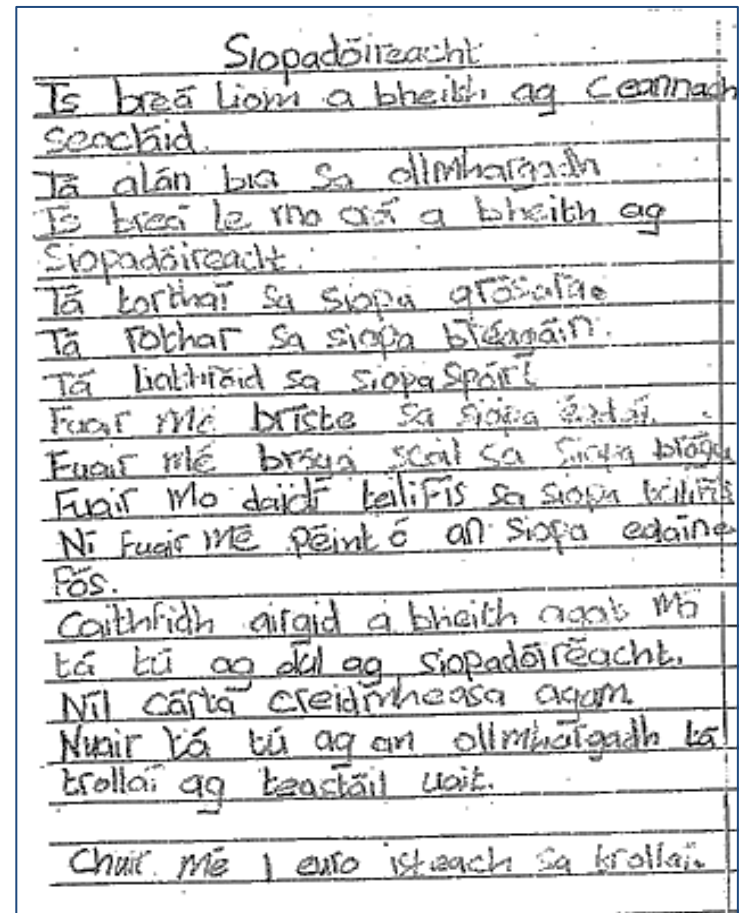 Siopadóireacht
Is breá liom a bheith ag ceannach
seacláid.
Tá alán bia sa ollmhargadh
Is breá le mo a bheith ag
Siopadóireacht.
Tá torthaí sa siopa grósaera
Tá rothar sa siopa bréagáin.
Tá liathróid sa siopa spóirt
Fuair mé bríste sa siopa éadaí.
Fuair mé scoil sa siopa bróga
Fuair mo daidí teilifís sa siopa teilifís
Ní fuair mé péint ó an siopa edaine
fós.
Caithfidh airgid a bheith agat má
tá tú ag dul ag siopadóireacht.
Níl cárta creidmheasa agam.
Nuair tá tú ag an ollmhargadh tá
trollaí ag teastáil uait.
Chuir mé 1 euro isteach sa trollaí.